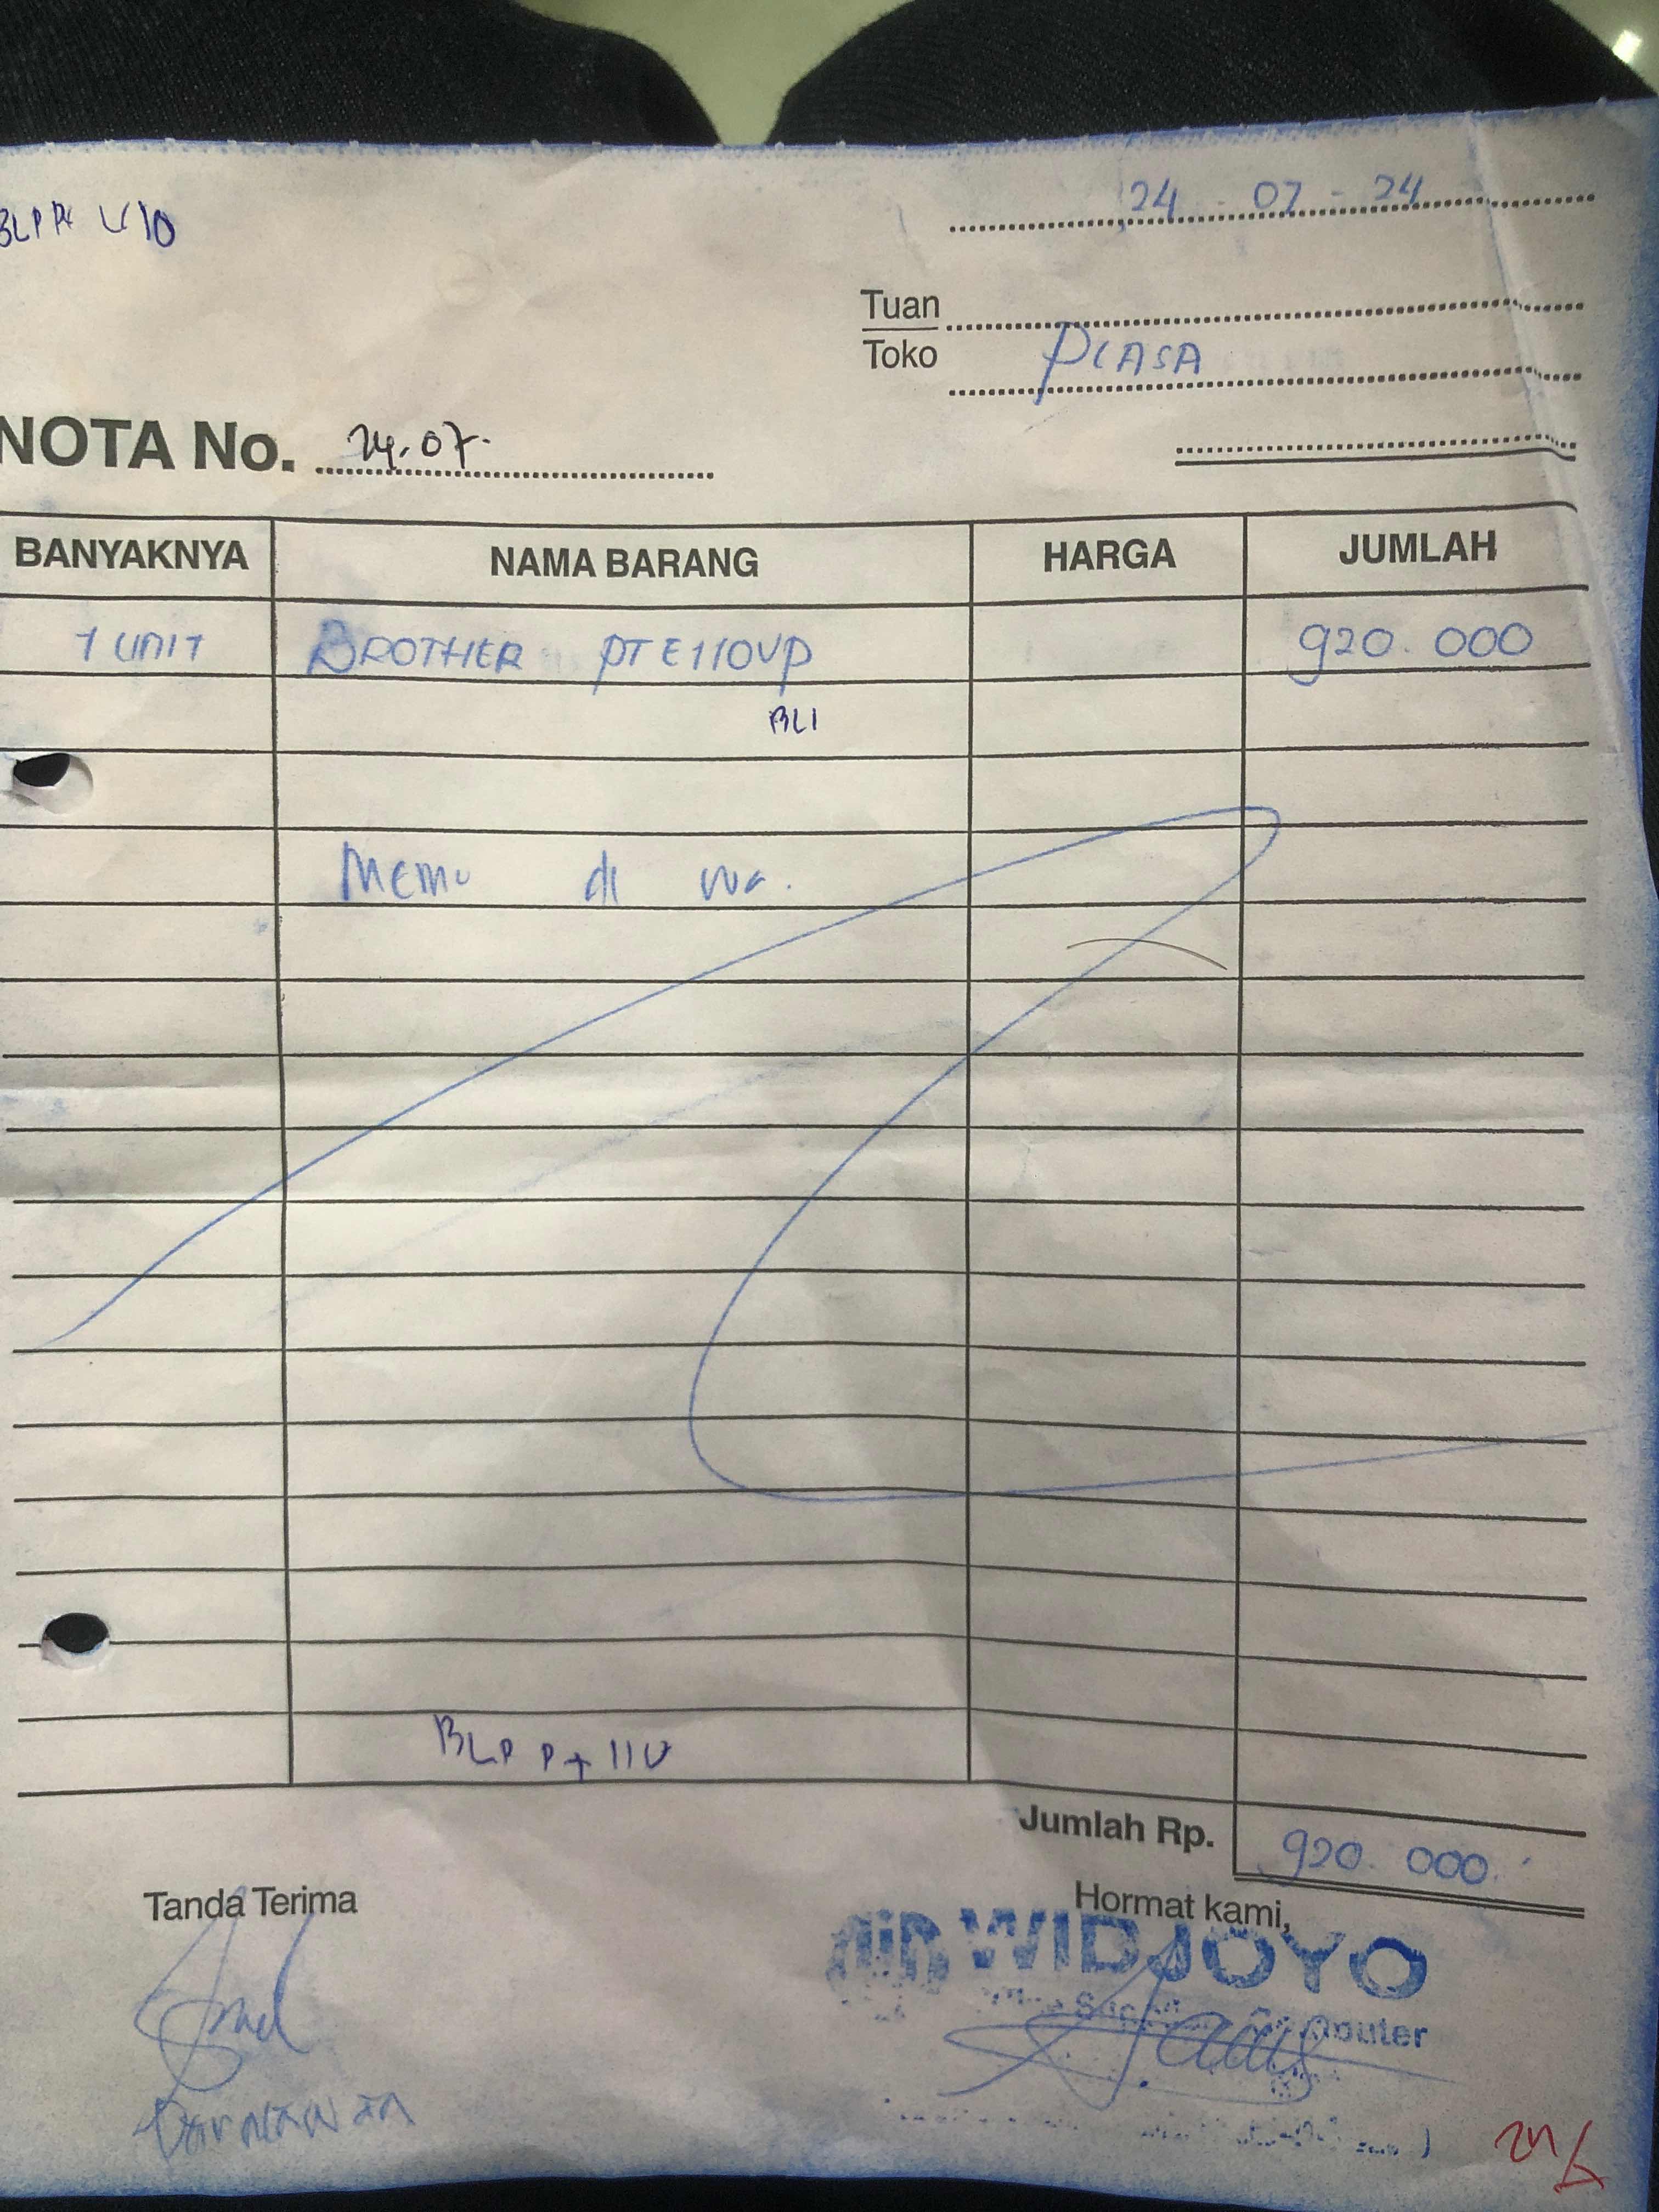 24 - 07 - 24
Tuan
Toko PLASA
NOTA No. 24.07.
BANYAKNYA NAMA BARANG HARGA JUMLAH
1 UNIT BROTHER PT E110VP 920.000
BLI
Memo di wa.
BLP P+ 110
Jumlah Rp. 920.000
Tanda Terima Hormat kami,
WIDJOYO
Computer